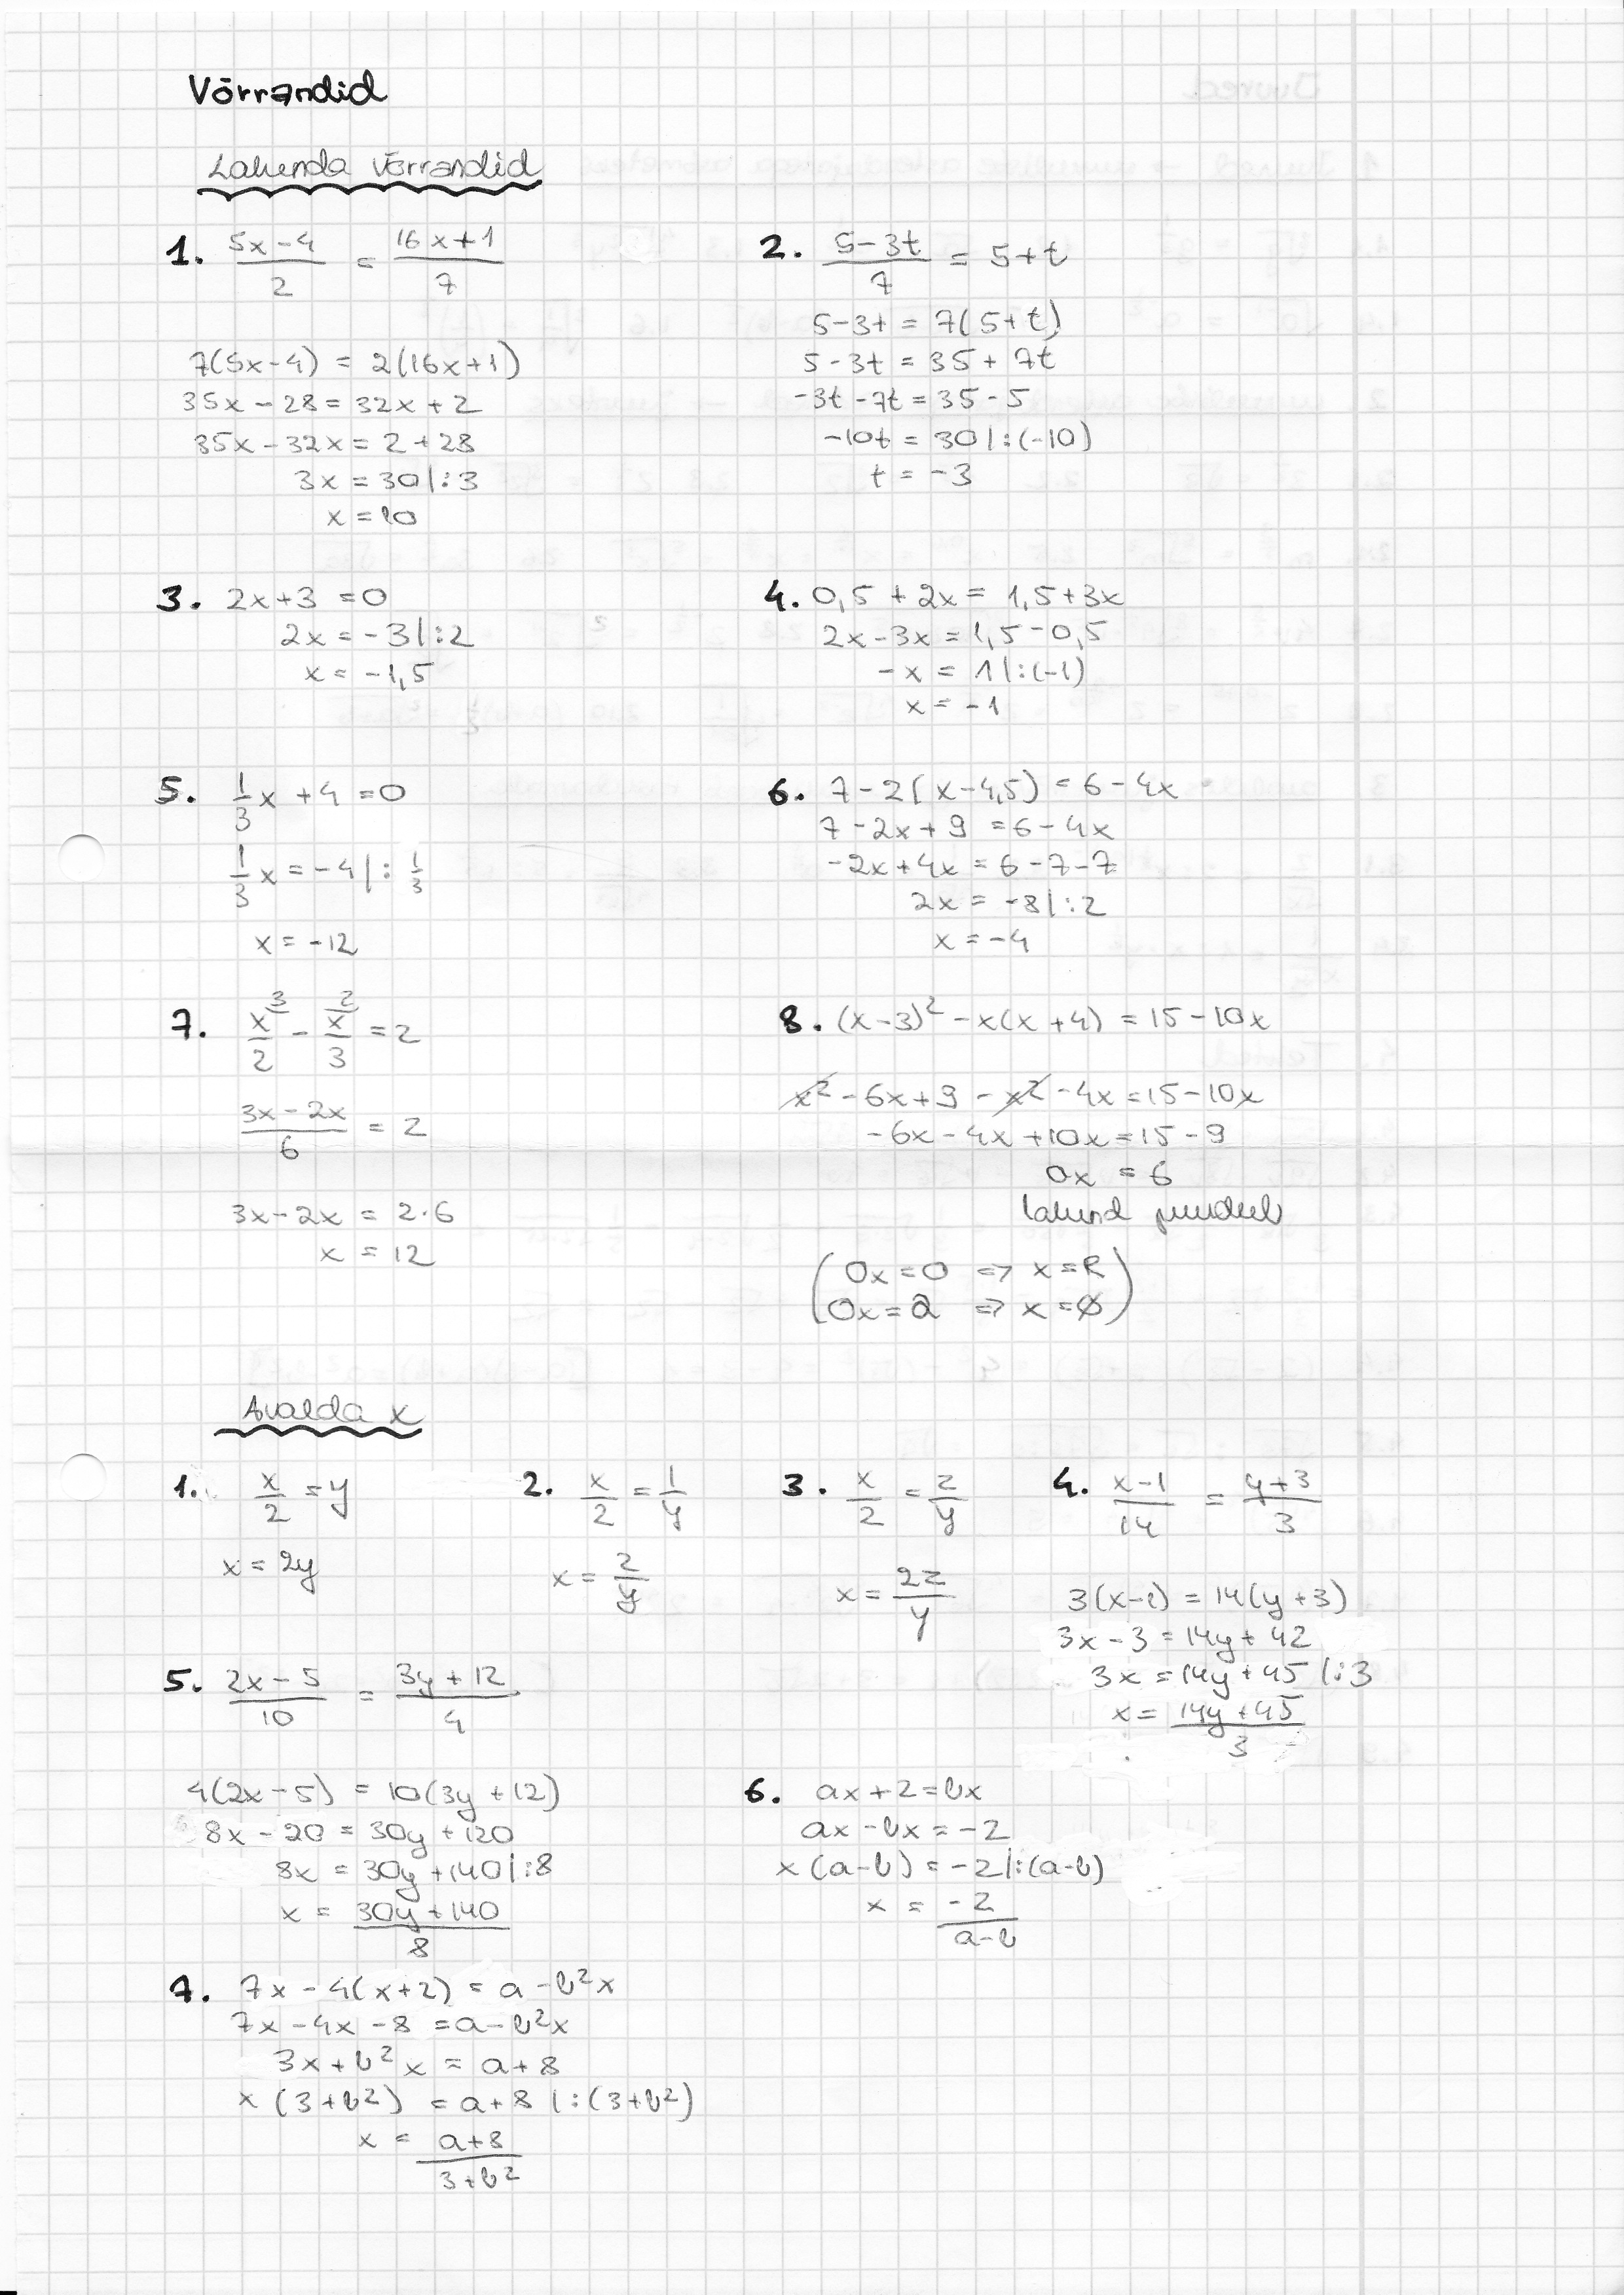 Võrrandid
Lahenda võrrandid
1. (5x-4)/2 = (16x+1)/7
7(5x-4) = 2(16x+1)
35x-28=32x+2
35x-32x=2+28
3x=30 |:3
x=10
2. (5-3t)/7 = 5+t
5-3t = 7(5+t)
5-3t = 35+7t
-3t-7t=35-5
-10t = 30 |:(-10)
t = -3
3. 2x+3=0
2x=-3 |:2
x=-1,5
4. 0,5+2x=1,5+3x
2x-3x=1,5-0,5
-x = 1 |:(-1)
x=-1
5. 1/3 x+4=0
1/3 x=-4 |: 1/3
x=-12
6. 7-2(x-4,5)=6-4x
7-2x+9=6-4x
-2x+4x=6-7-7
2x=-8 |:2
x=-4
7. x³/2 - x²/3 = 2
(3x-2x)/6 = 2
3x-2x=2·6
x=12
8. (x-3)²-x(x+4)=15-10x
x²-6x+9-x²-4x=15-10x
-6x-4x+10x=15-9
0x=6
lahend puudub
(0x=0 => x=R
0x=a => x=Ø)
Avalda x
1. x/2=y
x=2y
2. x/2=1/y
x=2/y
3. x/2=z/y
x=2z/y
4. (x-1)/14 = (y+3)/3
3(x-1)=14(y+3)
3x-3=14y+42
3x=14y+45 |:3
x=(14y+45)/3
5. (2x-5)/10 = (3y+12)/4
4(2x-5)=10(3y+12)
8x-20=30y+120
8x=30y+140 |:8
x=(30y+140)/8
6. ax+2=bx
ax-bx=-2
x(a-b)=-2 |:(a-b)
x=-2/(a-b)
7. 7x-4(x+2)=a-b²x
7x-4x-8=a-b²x
3x+b²x=a+8
x(3+b²)=a+8 |:(3+b²)
x=(a+8)/(3+b²)